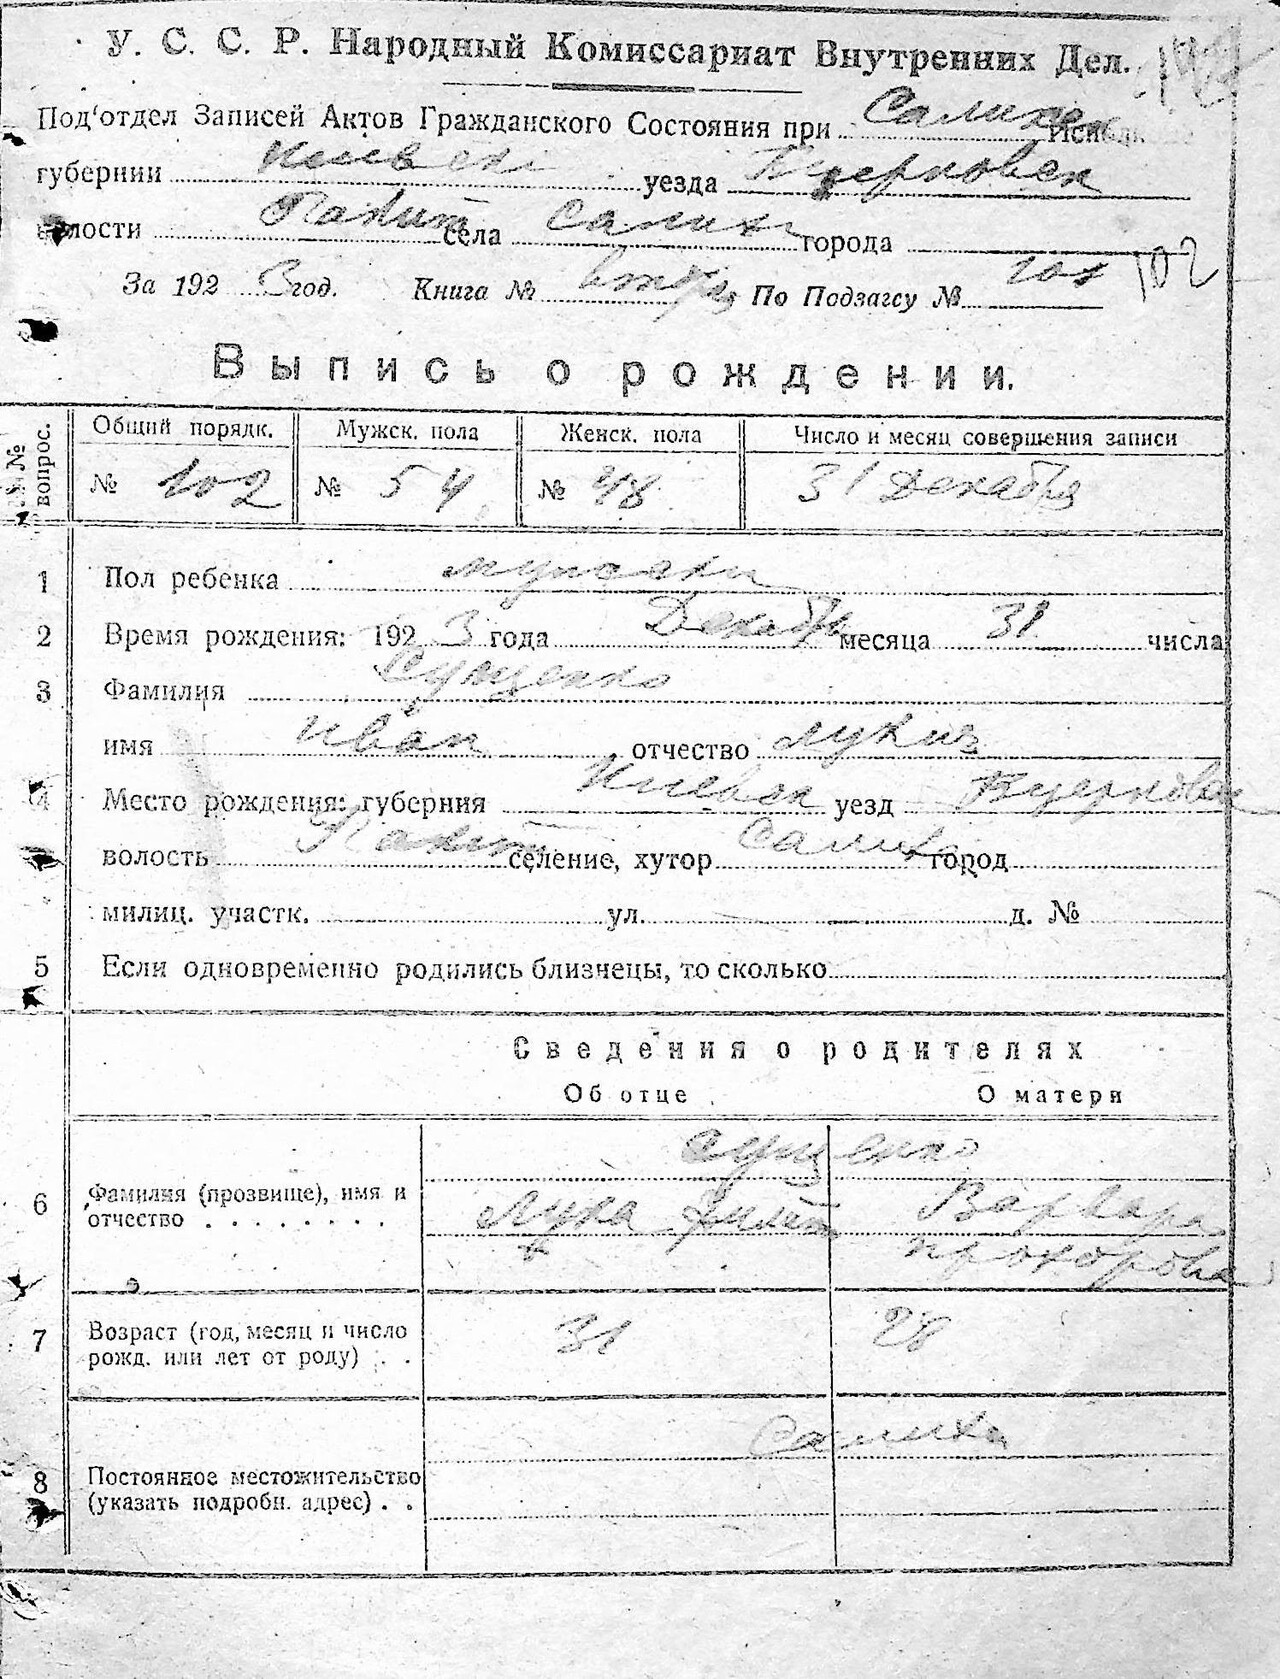 У. С. С. Р. Народный Комиссариат Внутренних Дел.
Под'отдел Записей Актов Гражданского Состояния при Салихск
губернии Киевск уезда
волости Пакит села Салиха города
За 1923 год. Книга № По Подзагсу № 101
102
Выпись о рождении.
№№ вопрос.
Общий порядк. Мужск. пола Женск. пола Число и месяц совершения записи
№ 102 № 54 № 48 31 Декабря
1 Пол ребенка мужски
2 Время рождения: 1923 года Декабр месяца 31 числа
3 Фамилия Сущенко
имя Иван отчество Лукич
4 Место рождения: губерния Киевск уезд
волость Пакит селение, хутор Салиха город
милиц. участк. ул. д. №
5 Если одновременно родились близнецы, то сколько
Сведения о родителях
Об отце О матери
Сущенко
6 Фамилия (прозвище), имя и отчество Лука Варвара
Прохорова
7 Возраст (год, месяц и число рожд. или лет от роду) 31 28
Салиха
8 Постоянное местожительство (указать подробн. адрес)